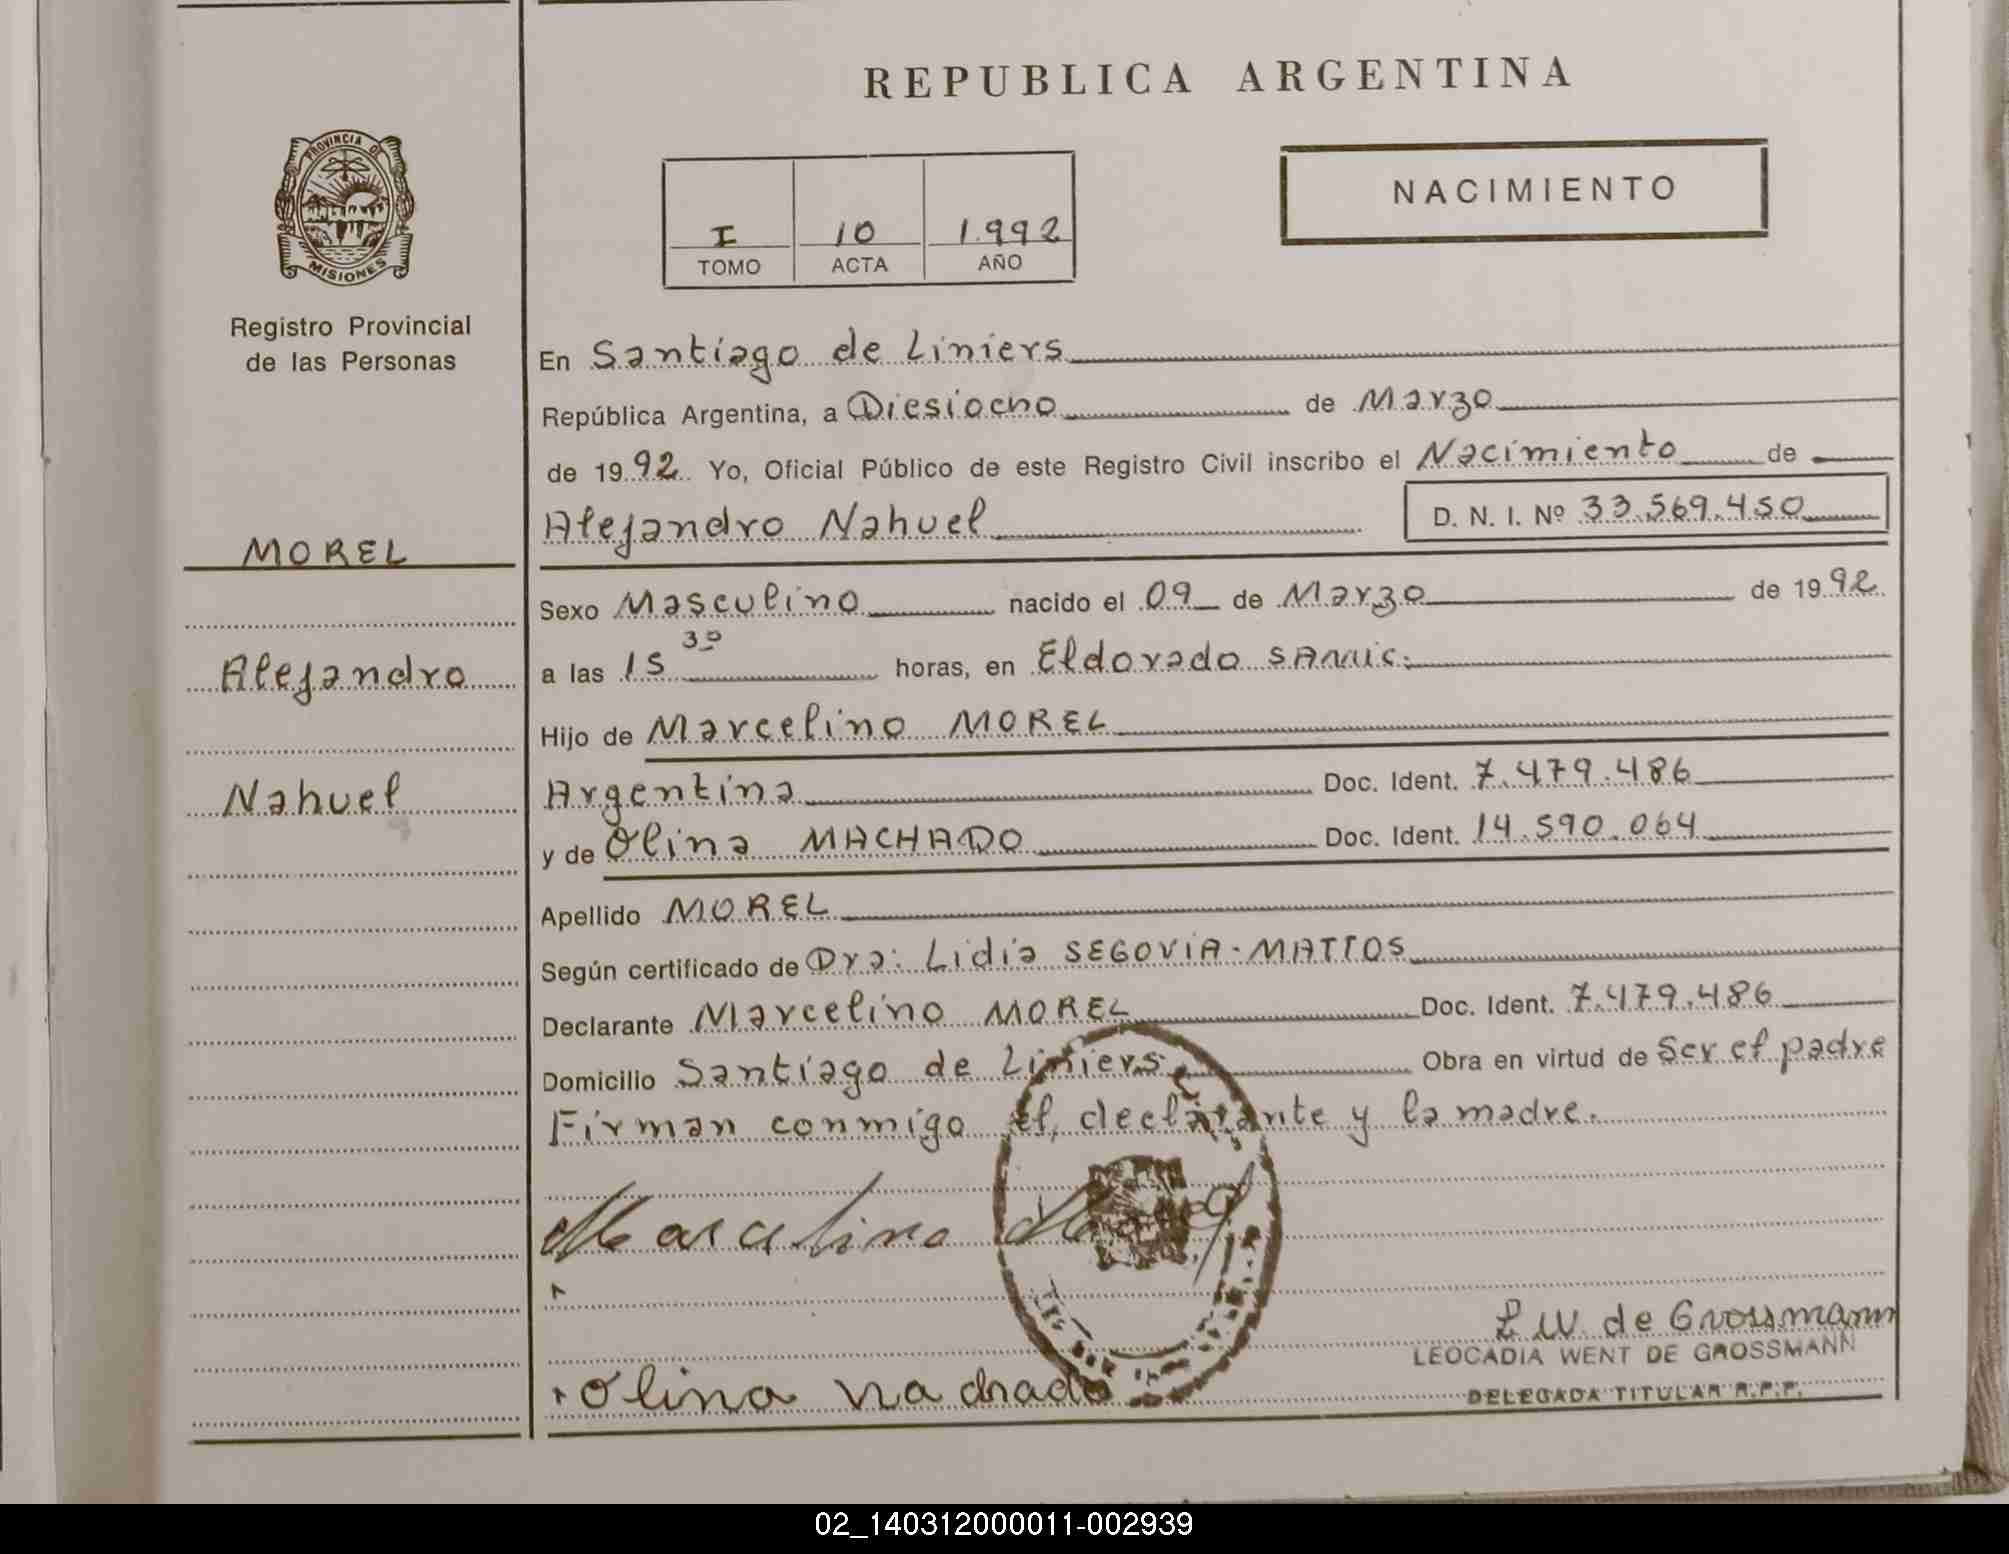 REPUBLICA ARGENTINA
PROVINCIA DE
MISIONES
Registro Provincial
de las Personas
MOREL
Alejandro
Nahuel
NACIMIENTO
I 10 1.992
TOMO ACTA AÑO
En Santiago de Liniers
República Argentina, a Diesiocho de Marzo
de 1992 Yo, Oficial Público de este Registro Civil inscribo el Nacimiento de
Alejandro Nahuel D. N. I. Nº 33.569.450
Sexo Masculino nacido el 09 de Marzo de 1992
a las 15 30 horas, en Eldorado SAMIC.
Hijo de Marcelino MOREL
Argentina Doc. Ident. 7.479.486
y de Olina MACHADO Doc. Ident. 14.590.064
Apellido MOREL
Según certificado de Dra: Lidia SEGOVIA-MATTOS
Declarante Marcelino MOREL Doc. Ident. 7.479.486
Domicilio Santiago de Liniers Obra en virtud de Ser el padre
Firman conmigo el declarante y la madre.
Marcelino
L W de Grossmann
LEOCADIA WENT DE GROSSMANN
DELEGADA TITULAR R.P.P.
Olina
02_140312000011-002939